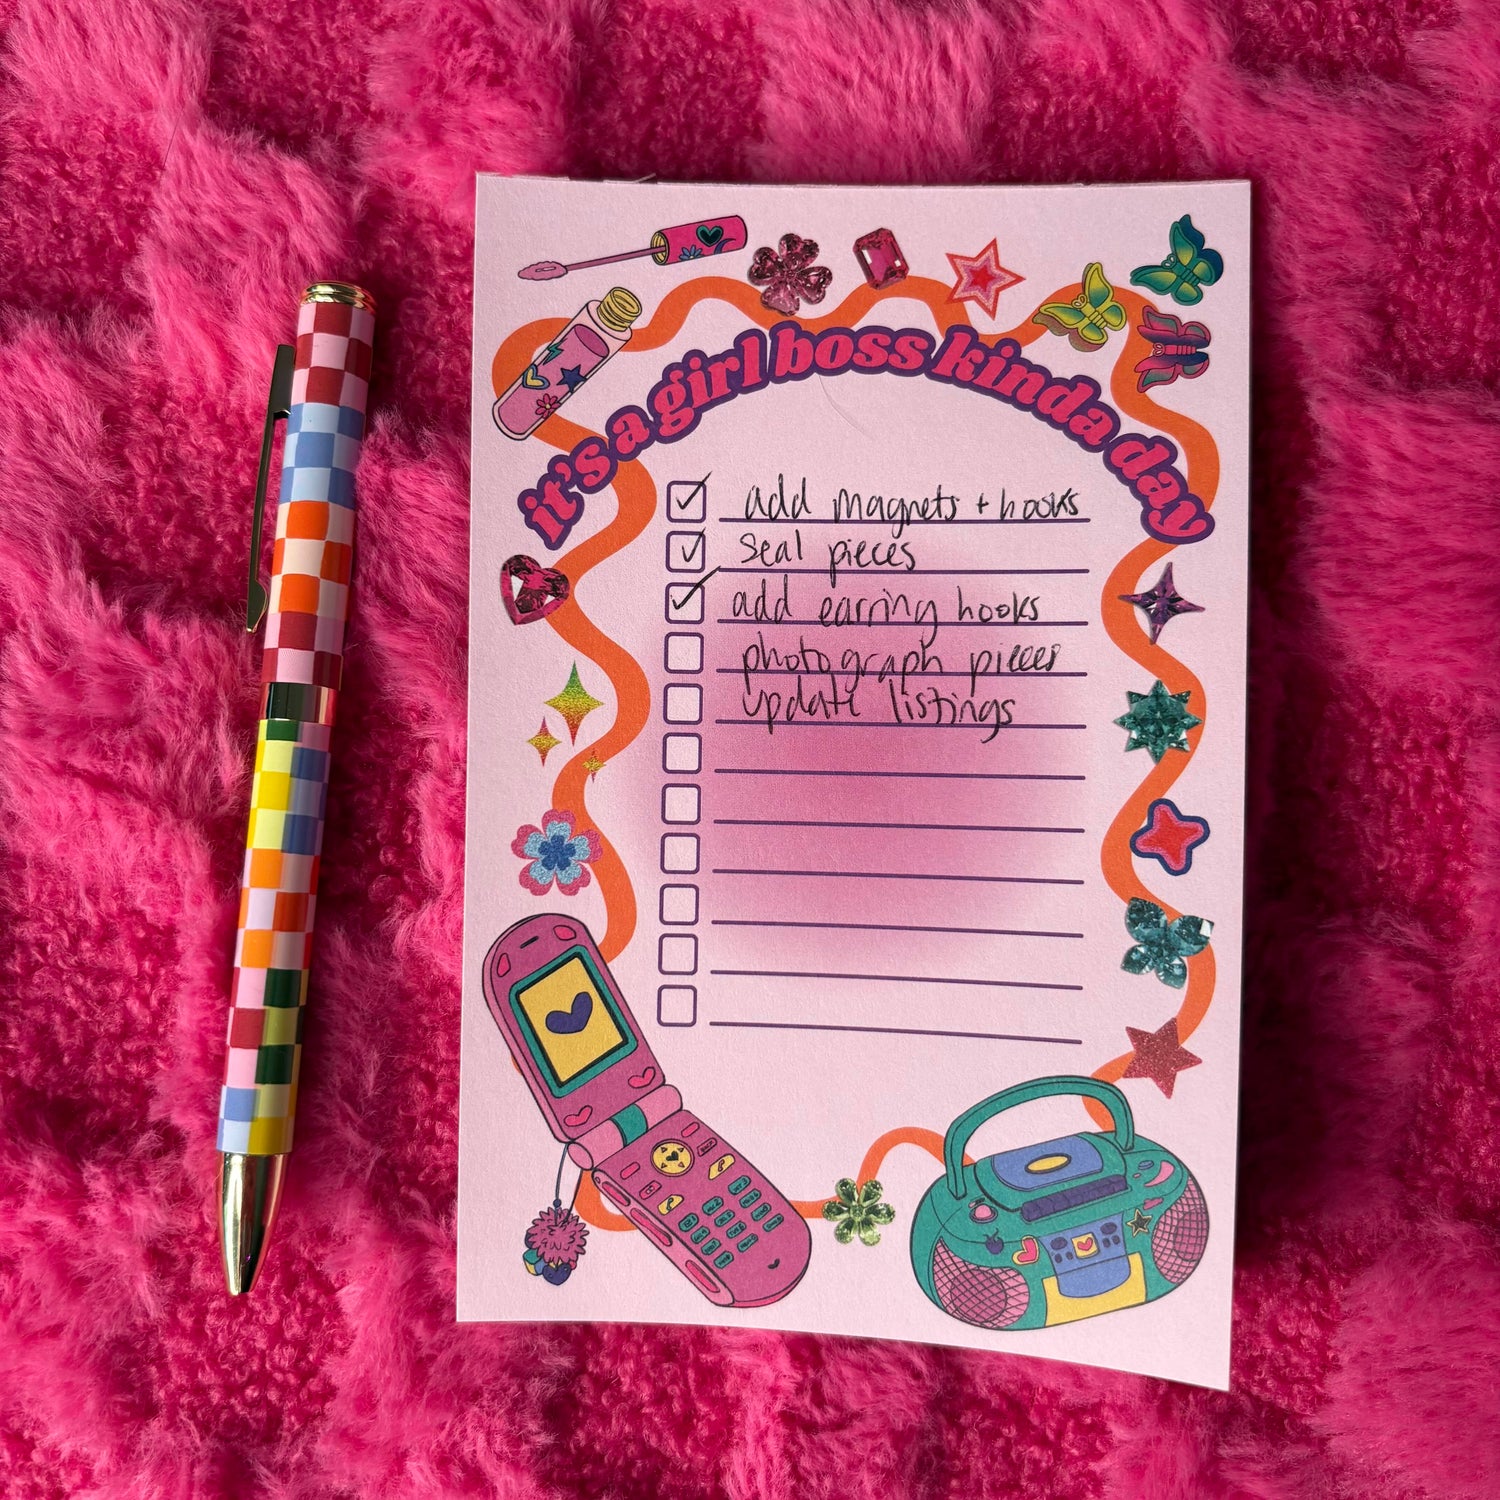 it's a girl boss kinda day
add magnets + hooks
seal pieces
add earring hooks
photograph pieces
update listings